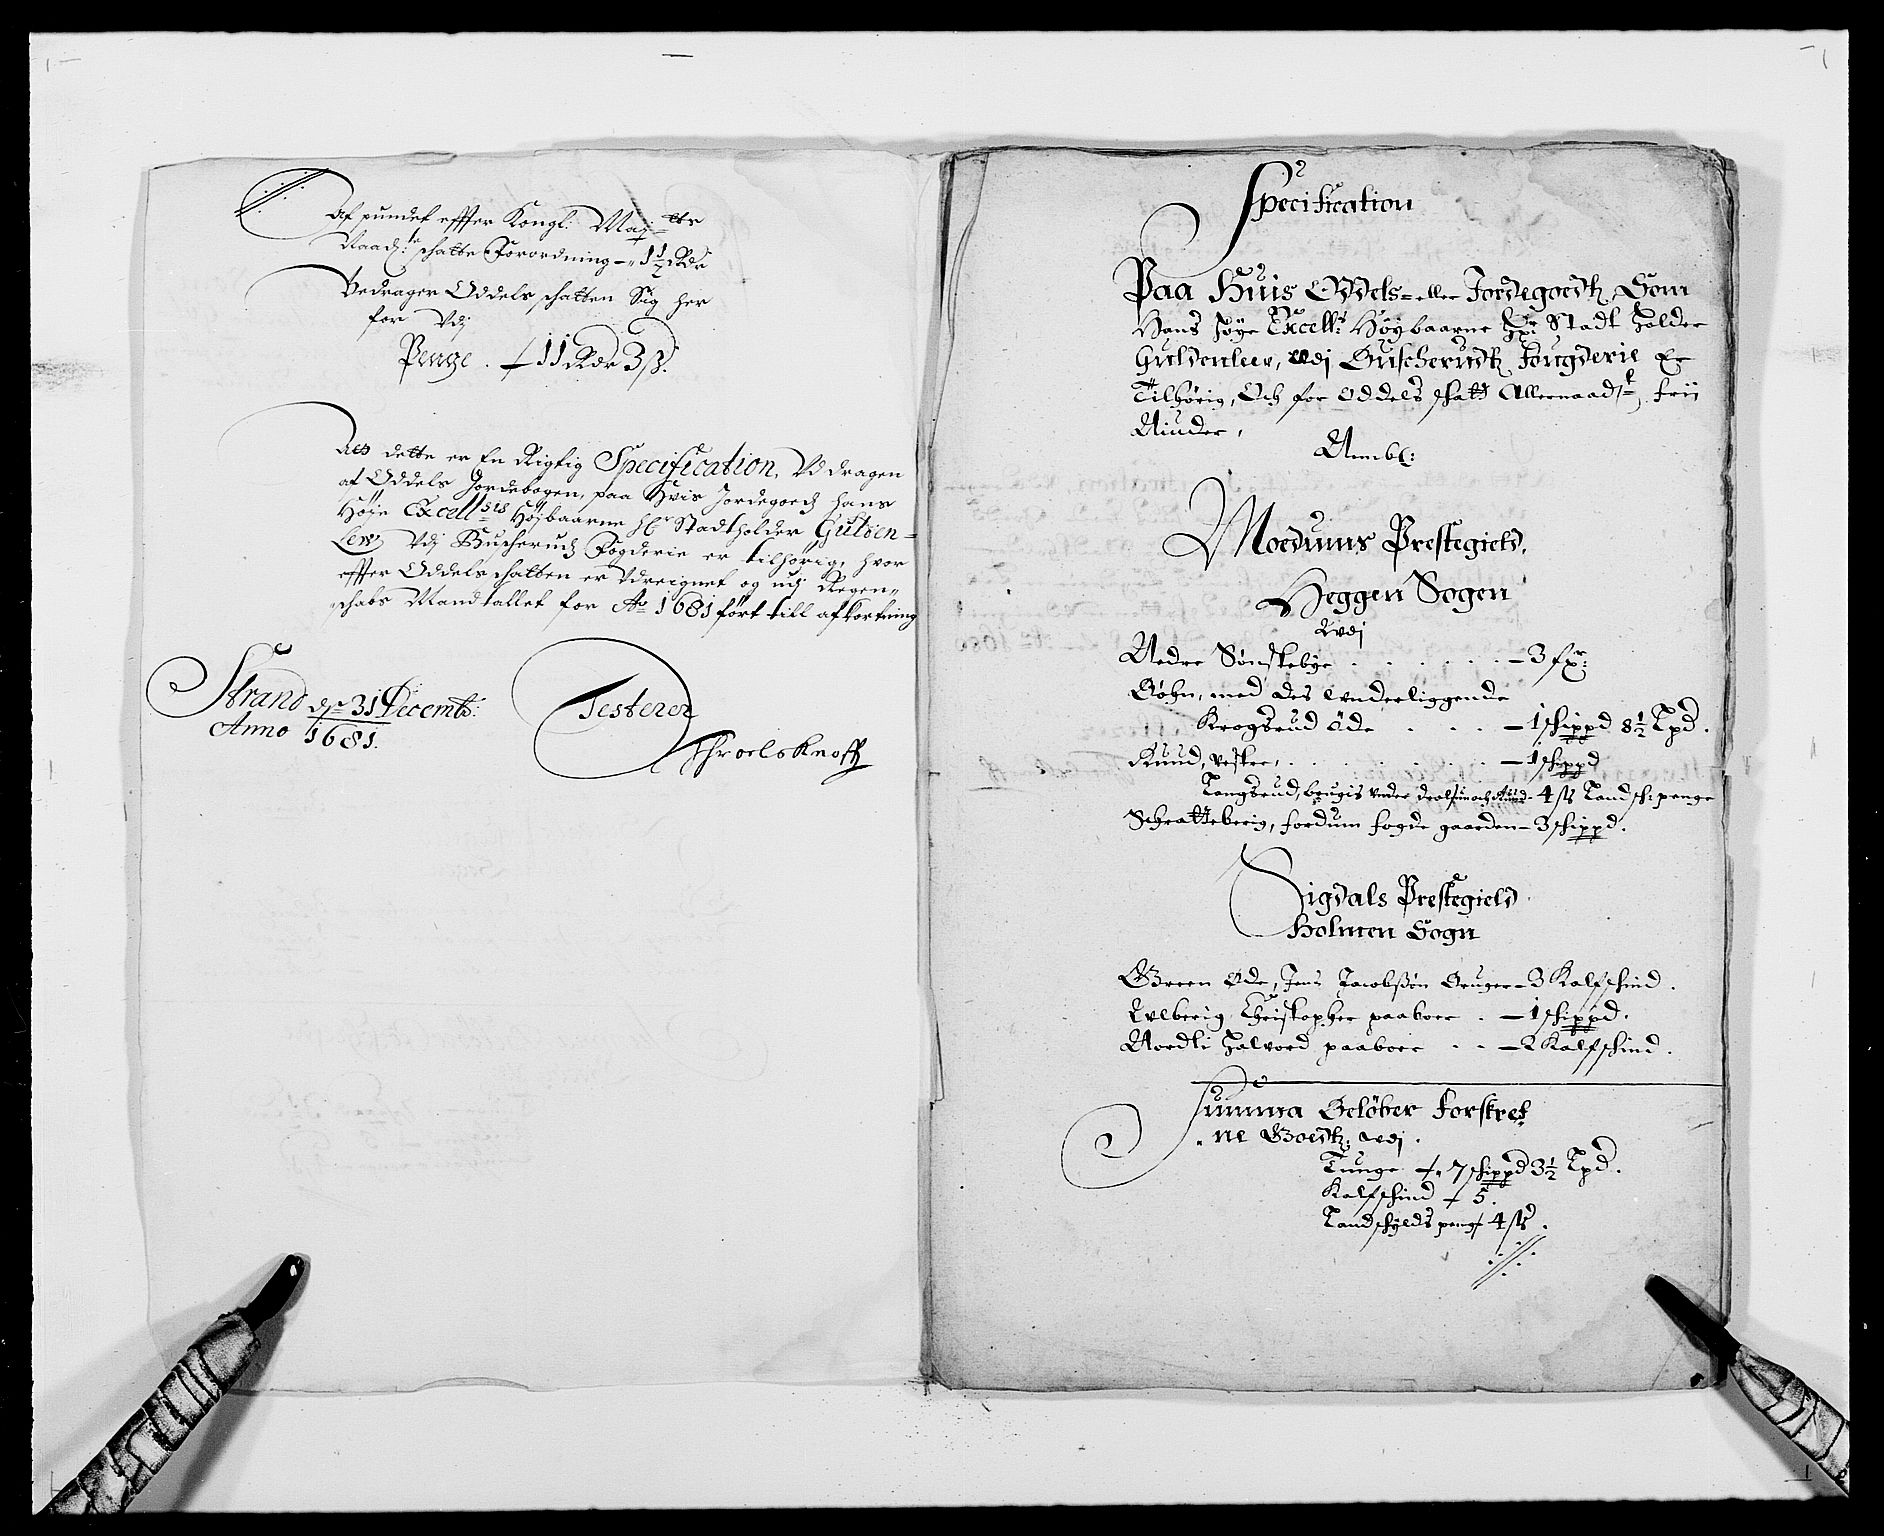 Af pundet effter Kongl: May:tts
Naad:te schatte Forordning — 1½ Rdr
Bedrager Oddels schatten Sig her
for Vdj
Penge . 11 Rdr 3 ß.
dette er En Rigtig Specification, Vddragen
af Oddels Jordebogen, paa Hvis Jordegoedz hans
Høje Excell:ces Høybaarne Hr Stadtholder Gulden-
Lew Vdj Buscherudz Fogderie er tilhørig, hvor
effter Oddelschatten er Vdreignet og udj Regen-
schabs Mandtallet for Ao 1681 ført till afkortning
Strand d. 31 Decemb:
Anno 1681.
Testerer
Throels Knoff
Specification
Paa Huis Oddels- eller Jordegoedtz Som
Hans Høye Excell:s Høybaarne Hr: Stadtholder
Guldenleew, Udj Buscherudtz Fougderie Er
Tilhørig, Och for Oddels schatt Allernaadste frii
Niuder,
Nembl:
Moedums Prestegield,
Heggen Sogen
Udj
Nedre Sønstebye . . . . . . — 3 fr:
Bøhn, med des underliggende
Krogsrud Øde . . . — 1 schippd 8½ Lpd.
Ruud, vester, . . . . . . — 1 schippd
Langerud, brugis under — 4 ß Landsch: penge
Schratteberig, fordum fogde gaarden — 3 schippd.
Sigdals Prestegield
Holmen Sogn
Green Øde, Jens Jacobßøn Bruger — 3 Kalfschind.
Ulberig Christopher paaboer . — 1 schippd.
Nordli Halvord paaboer . . — 2 Kalfschind.
Summa Beløber Forskref-
ne Goedtz, udj.
Tunge 7 schippd 3½ Lpd.
Kalfschind 5.
Landschylds peng 4 ß.